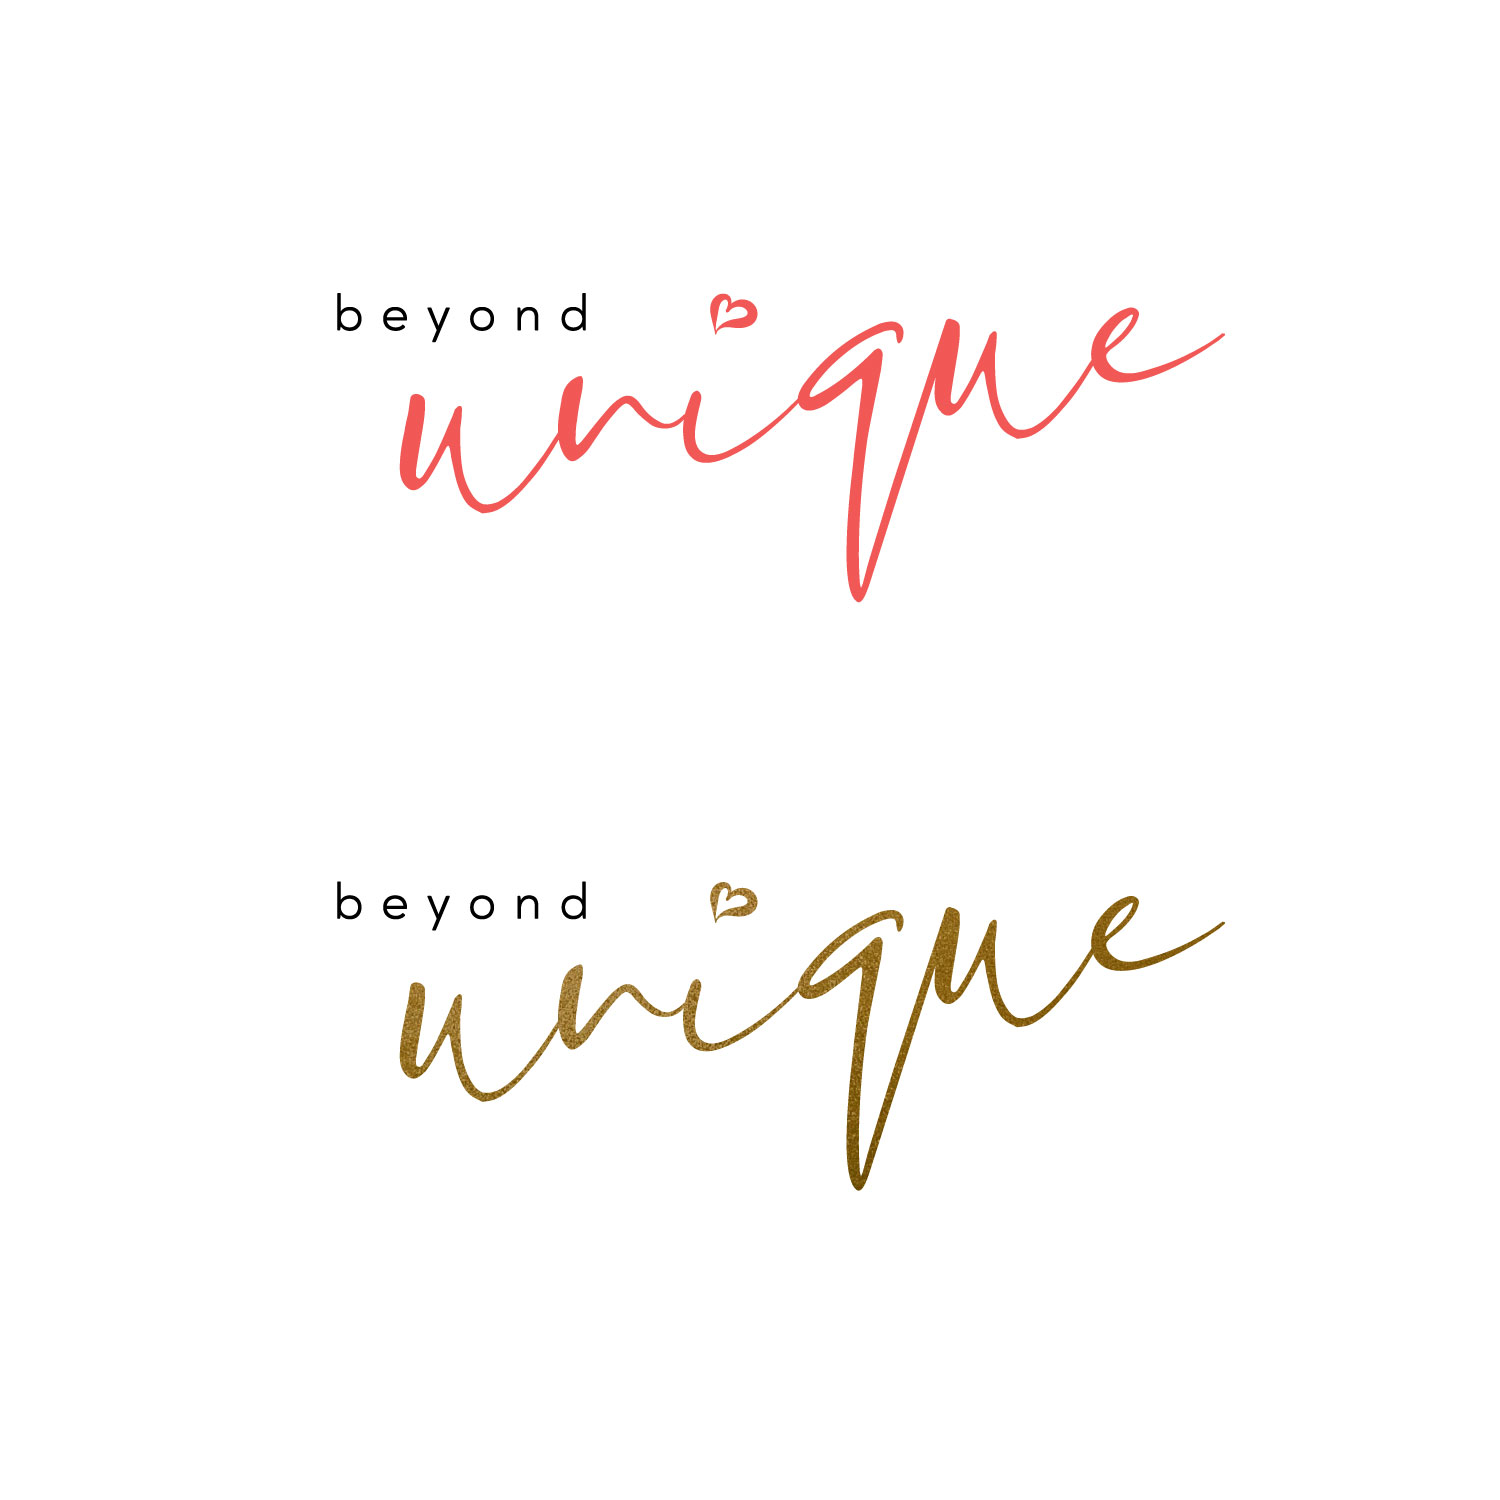 beyond
unique
beyond
unique